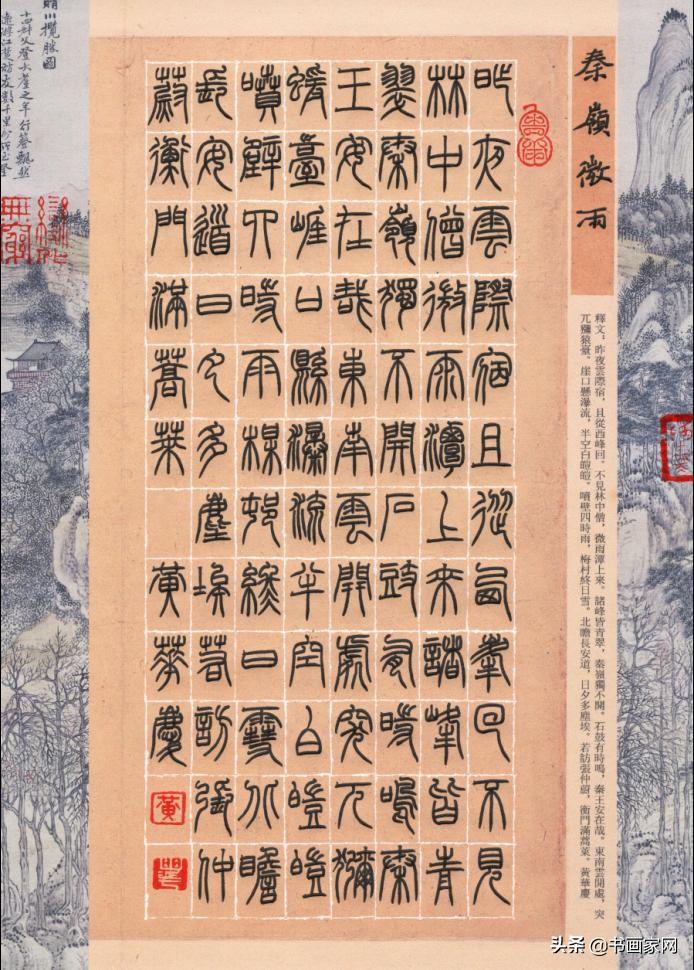 秦嶺微雨
釋文：昨夜雲際宿，且從西峰回。不見林中僧，微雨潭上來。諸峰皆青翠，秦嶺獨不開。石鼓有時鳴，秦王安在哉。東南雲開處，突
兀獼猿臺。崖口懸瀑流，半空白皚皚。噴壁四時雨，梅村終日雪。北瞻長安道，日夕多塵埃。若訪張仲蔚，衡門滿蒿萊。黃華慶
昨夜雲際宿且從西峯回不見
林中僧微雨潭上來諸峰皆青
翠秦嶺獨不開石鼓有時鳴秦
王安在哉東南雲開處突兀獼
猨臺崖口縣瀑流半空白皚皚
噴壁四時雨梅邨終日雪北瞻
長安道日夕多塵埃若訪張仲
蔚衡門滿蒿萊 黃華慶
黃
川攬勝圖
头条 @书画家网